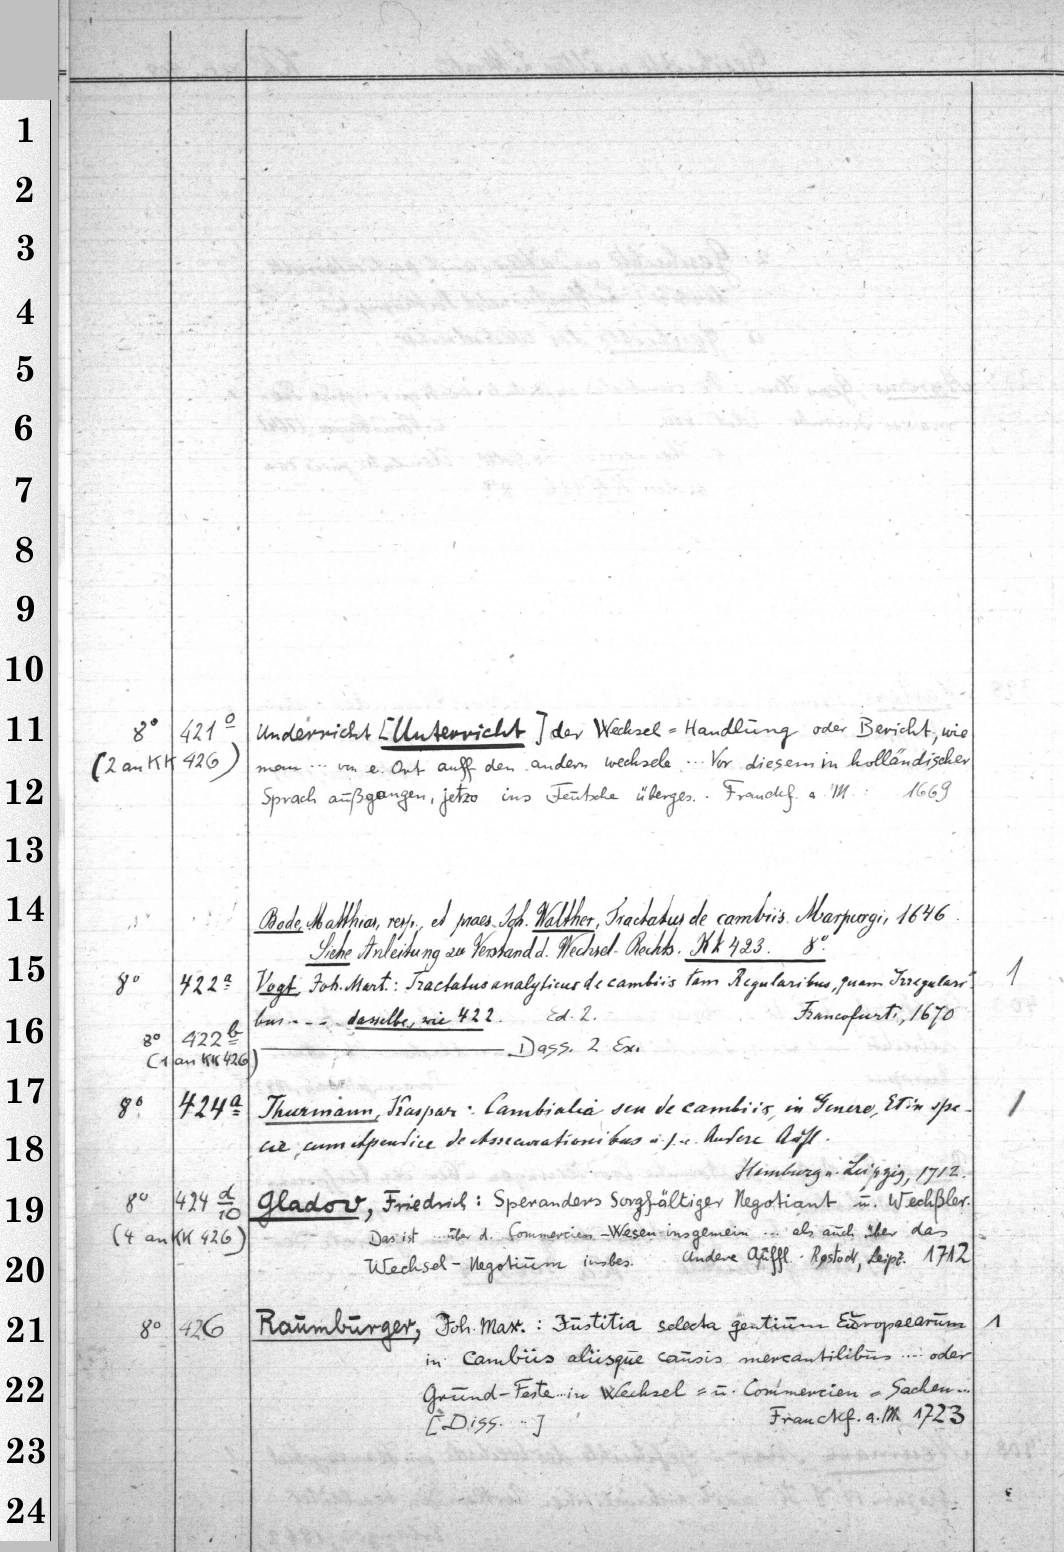 1
2
3
4
5
6
7
8
9
10
11 8° 421° Underricht [Unterricht] der Wechsel = Handlung oder Bericht, wie
(2 an KK 426) man ... von e. Ort auff den andern wechsele ... Vor diesem in holländischer
12 Sprach außgangen, jetzo ins Teutsche überges. . Franckf. a. M. 1669
13
14 Bode, Matthias, resp., et praes. Joh. Walther, Tractatus de cambiis. Marpurgi, 1646.
Siehe Anleitung zu Verstand d. Wechsel-Rechts. Kk 423. 8°.
15 8° 422a Vogt, Joh. Mart.: Tractatus analyticus de cambiis tam Regularibus, quam Irregulari- 1
bus. - - - dasselbe, wie 422. Ed. 2. Francofurti, 1670
16 8° 422b Dass. 2 Ex.
(1 an KK 426)
17 8° 424a Thurmann, Kaspar: Cambialia seu de cambiis, in Genere, Et in spe- 1
18 cie, cum Apendice de Assecurationibus u. s. w. Andere Aufl.
Hamburg u. Leipzig, 1712.
19 8° 424 d/10 Gladov, Friedrich: Speranders Sorgfältiger Negotiant u. Wechßler.
(4 an KK 426) Das ist ... über d. Commercien-Wesen insgemein ... als auch über das
20 Wechsel-Negotium insbes. Andere Auffl. Rostock, Leipz. 1712
21 8° 426 Raumburger, Joh. Max.: Justitia selecta gentium Europaearum 1
in Cambiis aliisque causis mercantilibus .... oder
22 Grund-Feste ... in Wechsel = u. Commercien = Sachen ...
[Diss. ...] Franckf. a. M. 1723
23
24